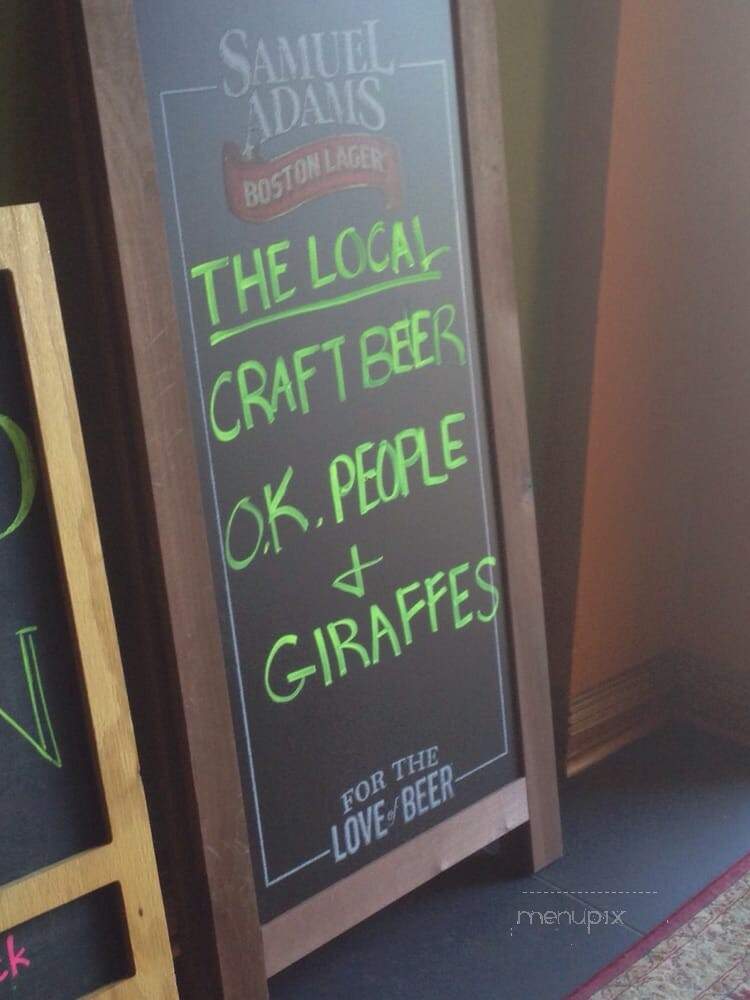 SAMUEL
ADAMS
BOSTON LAGER
THE LOCAL
CRAFT BEER
O.K. PEOPLE
+
GIRAFFES
FOR THE
LOVE of BEER
menupix